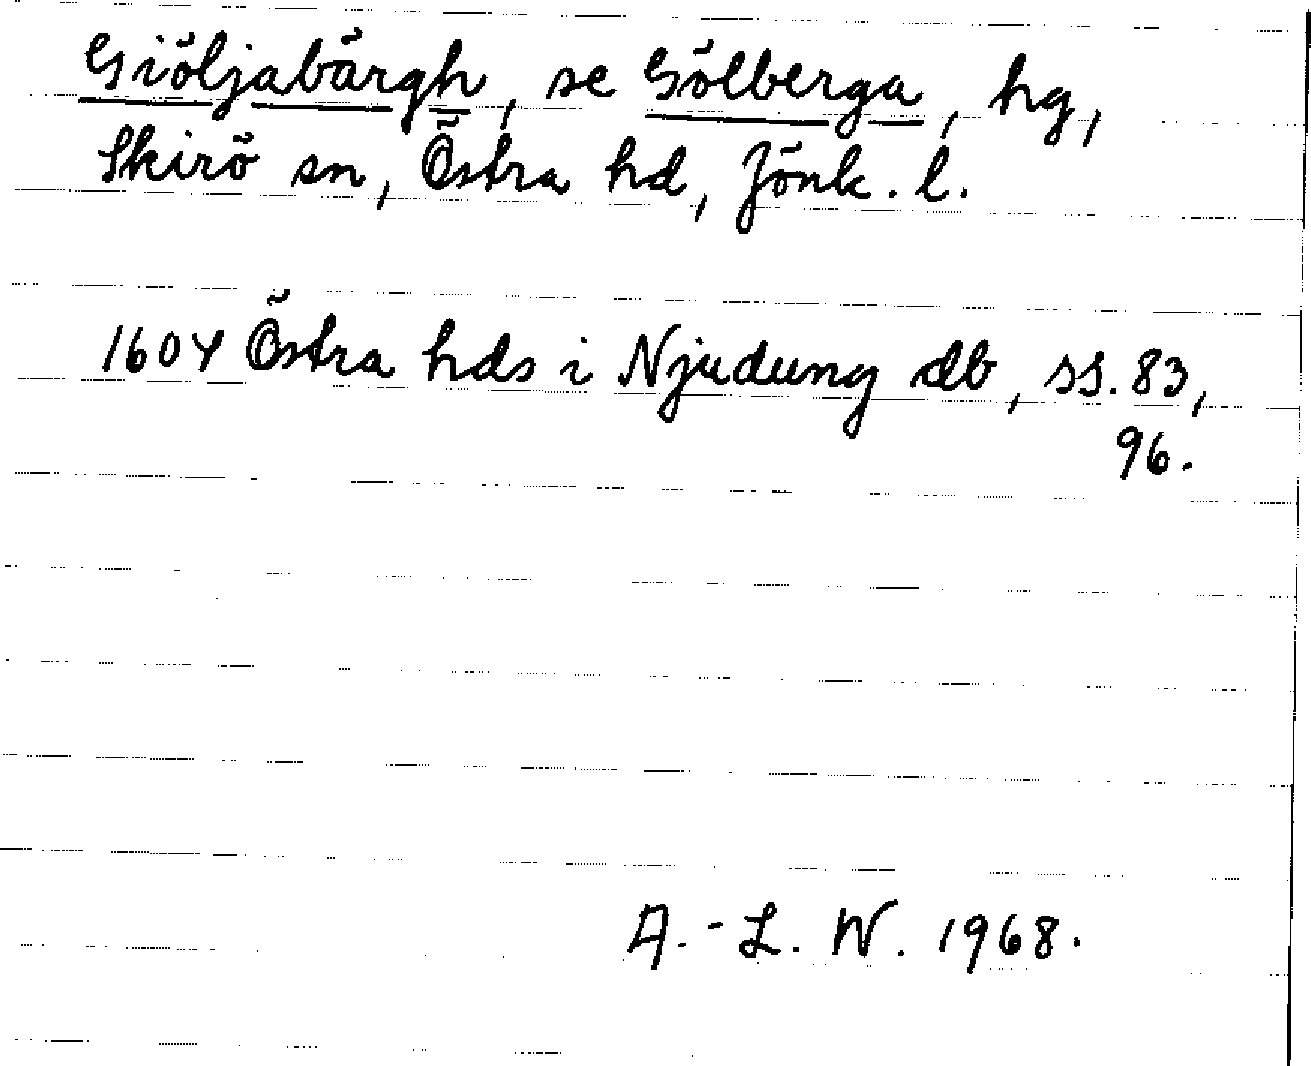 Giöljabärgh, se Gölberga, hg,
Skirö sn, Östra hd, Jönk. l.
1604 Östra hds i Njudung db, ss. 83,
96.
A.-L. W. 1968.